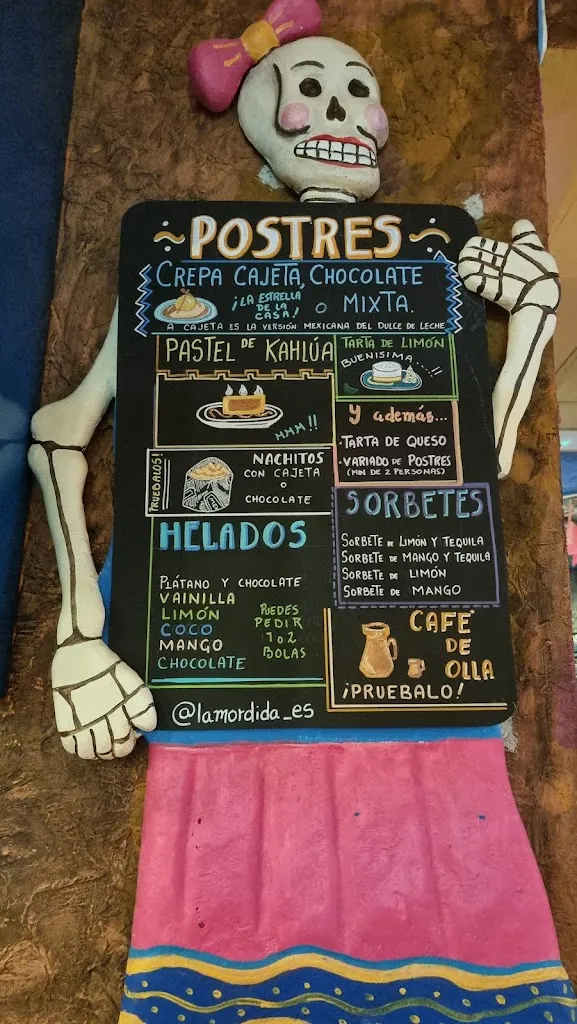 POSTRES
CREPA CAJETA, CHOCOLATE
¡LA ESTRELLA
DE LA
CASA!
O MIXTA.
A CAJETA ES LA VERSIÓN MEXICANA DEL DULCE DE LECHE
PASTEL DE KAHLÚA
MMM!!
TARTA DE LIMÓN
BUENISIMA...!!
Y además...
·TARTA DE QUESO
·VARIADO DE POSTRES
(MIN DE 2 PERSONAS)
PRUEBALOS!
NACHITOS
CON CAJETA
O
CHOCOLATE
HELADOS
PLÁTANO Y CHOCOLATE
VAINILLA
LIMÓN
COCO
MANGO
CHOCOLATE
PUEDES
PEDIR
1 o 2
BOLAS
SORBETES
SORBETE DE LIMÓN Y TEQUILA
SORBETE DE MANGO Y TEQUILA
SORBETE DE LIMÓN
SORBETE DE MANGO
CAFE
DE
OLLA
¡PRUEBALO!
@lamordida_es